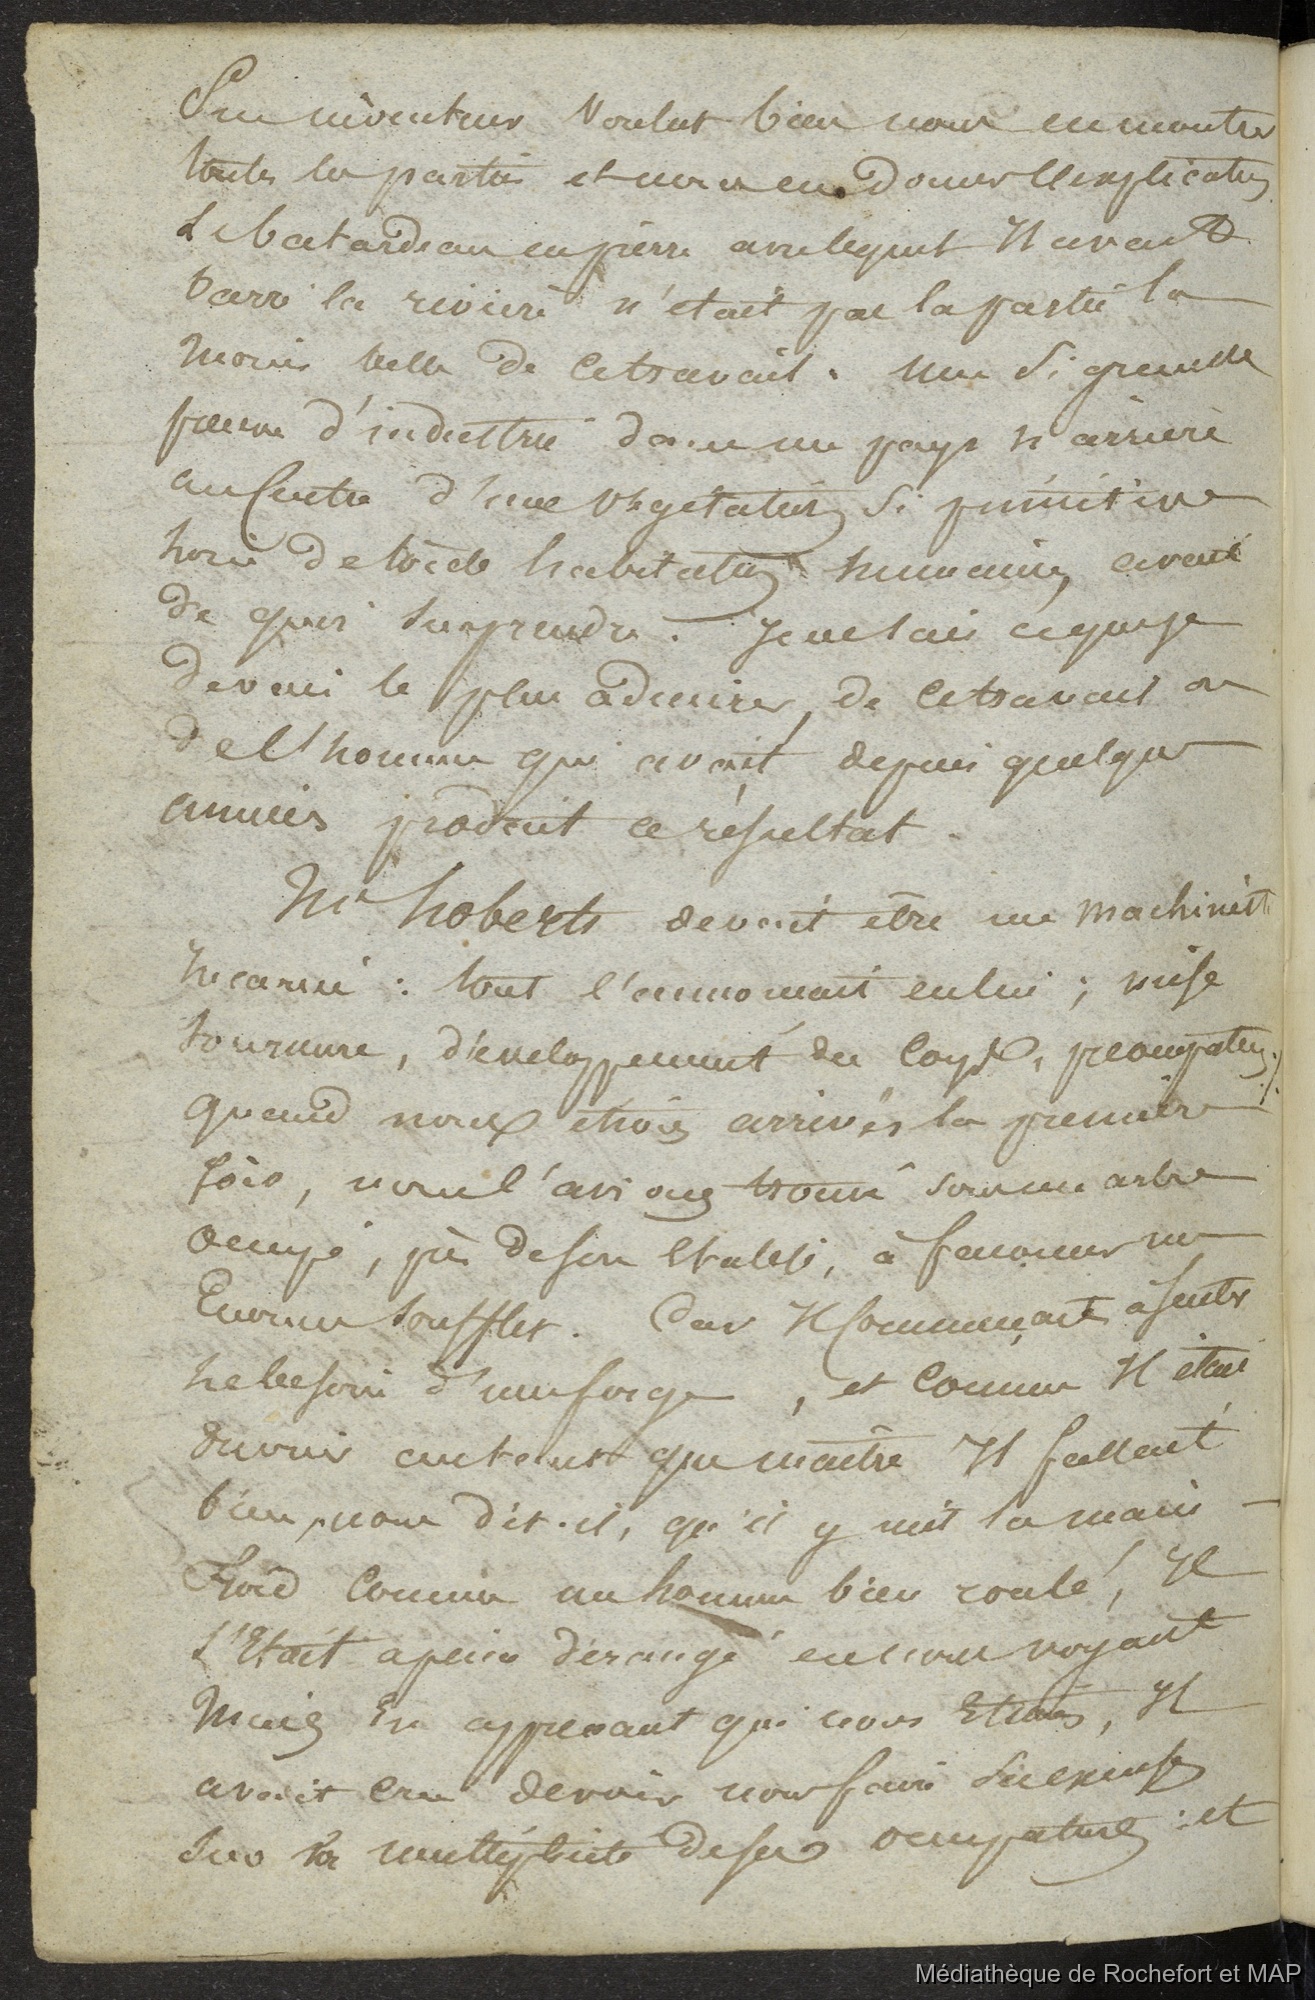 Son inventeur voulut bien nous en montrer
toutes les parties et nous en donner l'explication
Le batardeau en pierre avec lequel Il avait
barré la rivière n'était pas la partie la
moins belle de ce travail. Une si grande
preuve d'industrie dans un pays si arriéré
au Centre d'une végétation si primitive
hors de toute habitation humaine, avait
de quoi surprendre. Je ne sais ce que je
devais le plus admirer, de ce travail ou
de l'homme qui avait depuis quelques
années produit ce résultat.
Mr Roberts devait être un machiniste
Incarné : tout l'annonçait en lui ; mise
tournure, développement du Corps, préoccupation.
quand nous étions arrivés la première
fois, nous l'avions trouvé sous un arbre
occupé, près de son Etabli, à façonner un
Enorme soufflet. Car Il Commençait à sentir
le besoin d'une forge, et Comme Il était
ouvrier autant que maître Il fallait
bien, nous dit-il, qu'il y mit la main
Froid Comme un homme bien roulé, Il
s'Etait à peine dérangé en nous voyant
Mais En apprenant qui nous Etions, Il
avait Cru devoir nous faire des excuses
sur la multiplicité de ses occupations : et
Médiathèque de Rochefort et MAP